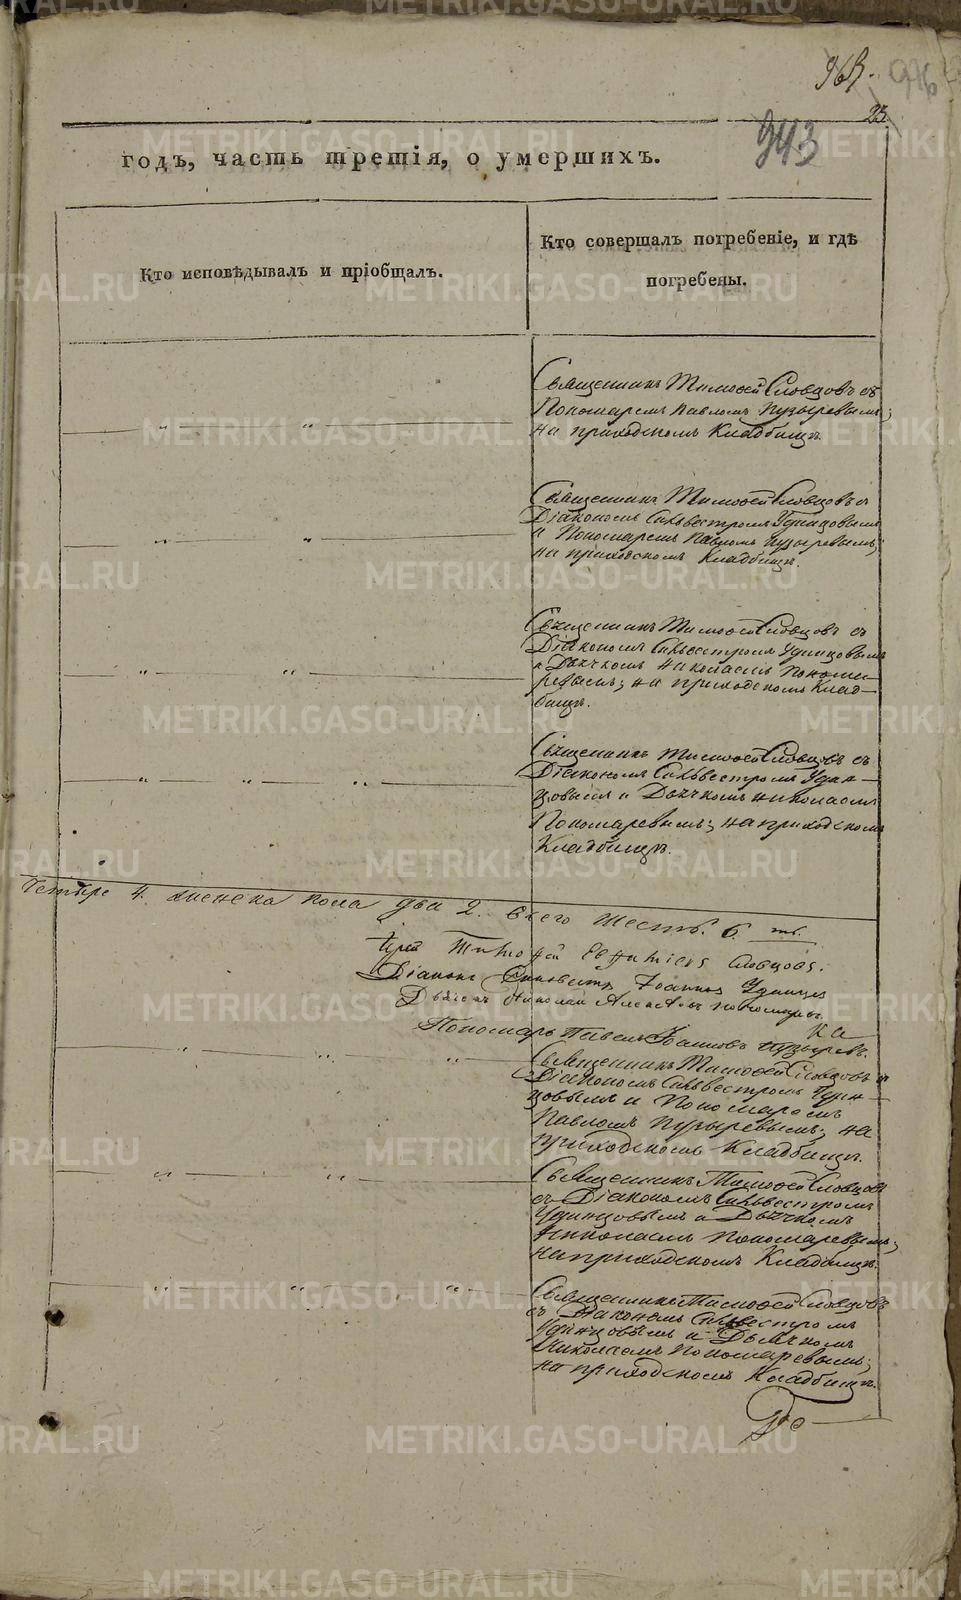 943
23
годъ, часть третія, о умершихъ.
Кто исповѣдывалъ и пріобщалъ.
Кто совершалъ погребеніе, и гдѣ
погребены.
Священникъ Тимофей Словцовъ съ
Пономаремъ Павломъ Пузыревымъ;
на приходскомъ Кладбищѣ.
Священникъ Тимофей Словцовъ съ
Діакономъ Сильвестромъ Удинцовымъ
и Пономаремъ Павломъ Пузыревымъ;
на приходскомъ Кладбищѣ.
Священникъ Тимофей Словцовъ съ
Діакономъ Сильвестромъ Удинцовымъ
и Дьячкомъ Николаемъ Понома-
ревымъ; на приходскомъ Клад-
бищѣ.
Священникъ Тимофей Словцовъ съ
Діакономъ Сильвестромъ Удин-
цовымъ и Дьячкомъ Николаемъ
Пономаревымъ; на приходскомъ
Кладбищѣ.
Четыре 4. женска пола два 2. всего шесть. 6.
Іерей Тимофей Словцовъ.
Діаконъ Удинцов
Дьячек Николай Пономарев
Пономарь Павелъ Пузыревъ.
Священникъ Тимофей Словцовъ съ
Діакономъ Сильвестромъ Удин-
цовымъ и Пономаремъ
Павломъ Пузыревымъ; на
приходскомъ Кладбищѣ.
Священникъ Тимофей Словцовъ
съ Діакономъ Сильвестромъ
Удинцовымъ и Дьячкомъ
Николаемъ Пономаревымъ;
на приходскомъ Кладбищѣ.
Священникъ Тимофей Словцовъ
съ Діакономъ Сильвестромъ
Удинцовымъ и Дьячкомъ
Николаемъ Пономаревымъ;
на приходскомъ Кладбищѣ.
METRIKI.GASO-URAL.RU